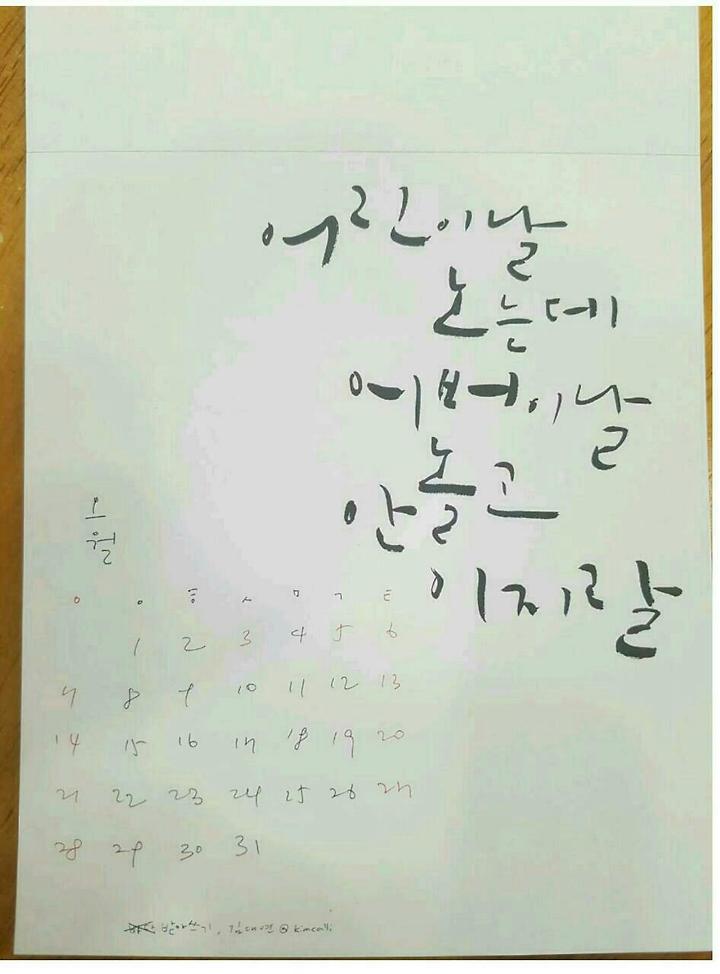 어린이날
노는데
어버이날
안놀고
이지랄
오
월
ㅇ ㅇ ㅎ ㅅ ㅁ ㄱ ㅌ
1 2 3 4 5 6
7 8 9 10 11 12 13
14 15 16 17 18 19 20
21 22 23 24 25 26 27
28 29 30 31
받아쓰기, 김대연 @ kimcalli